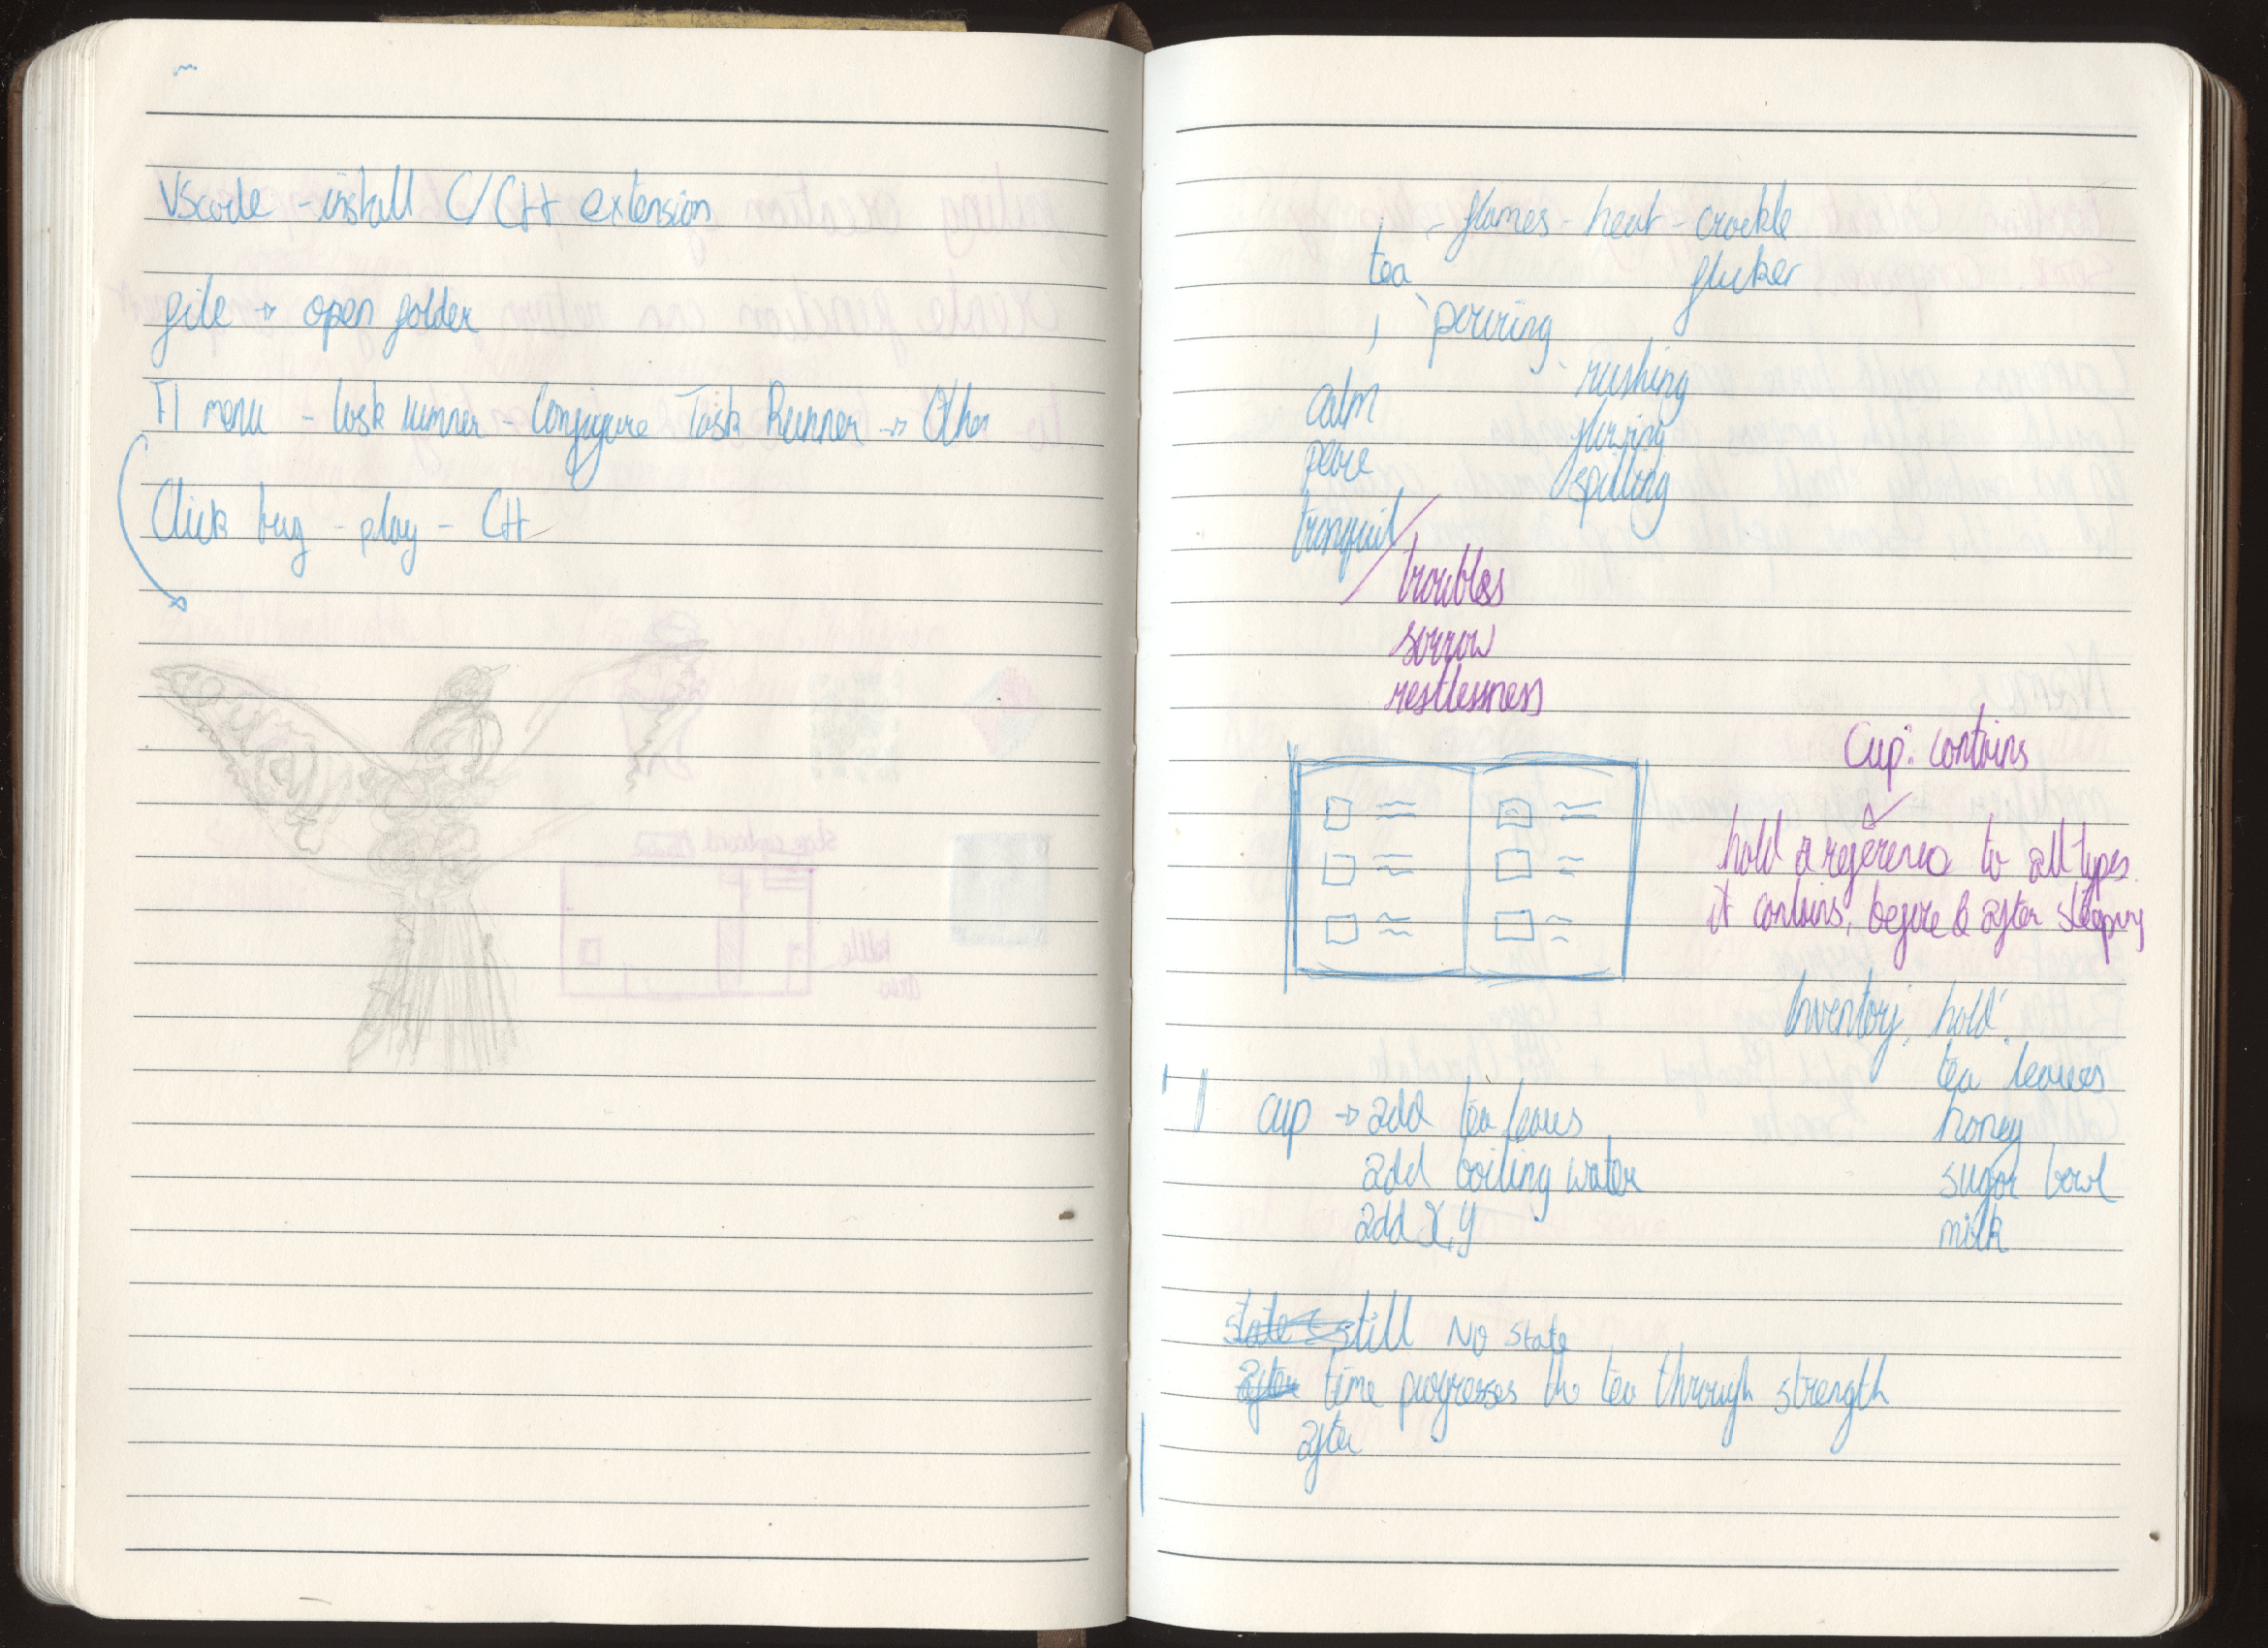 VScode - install C/C++ extension
file → open folder
F1 menu - task runner - Configure Task Runner → Other
Click bug - play - C++
- flames - heat - crackle
tea
flicker
pouring
rushing
calm
peace
spilling
tranquil
troubles
sorrow
restlessness
Cup: contains
hold a reference to all types
it contains, before & after steeping
Inventory: hold:
tea leaves
cup → add tea leaves
honey
add boiling water
sugar bowl
add X, Y
milk
state still NO state
after time progresses the tea through strength
after